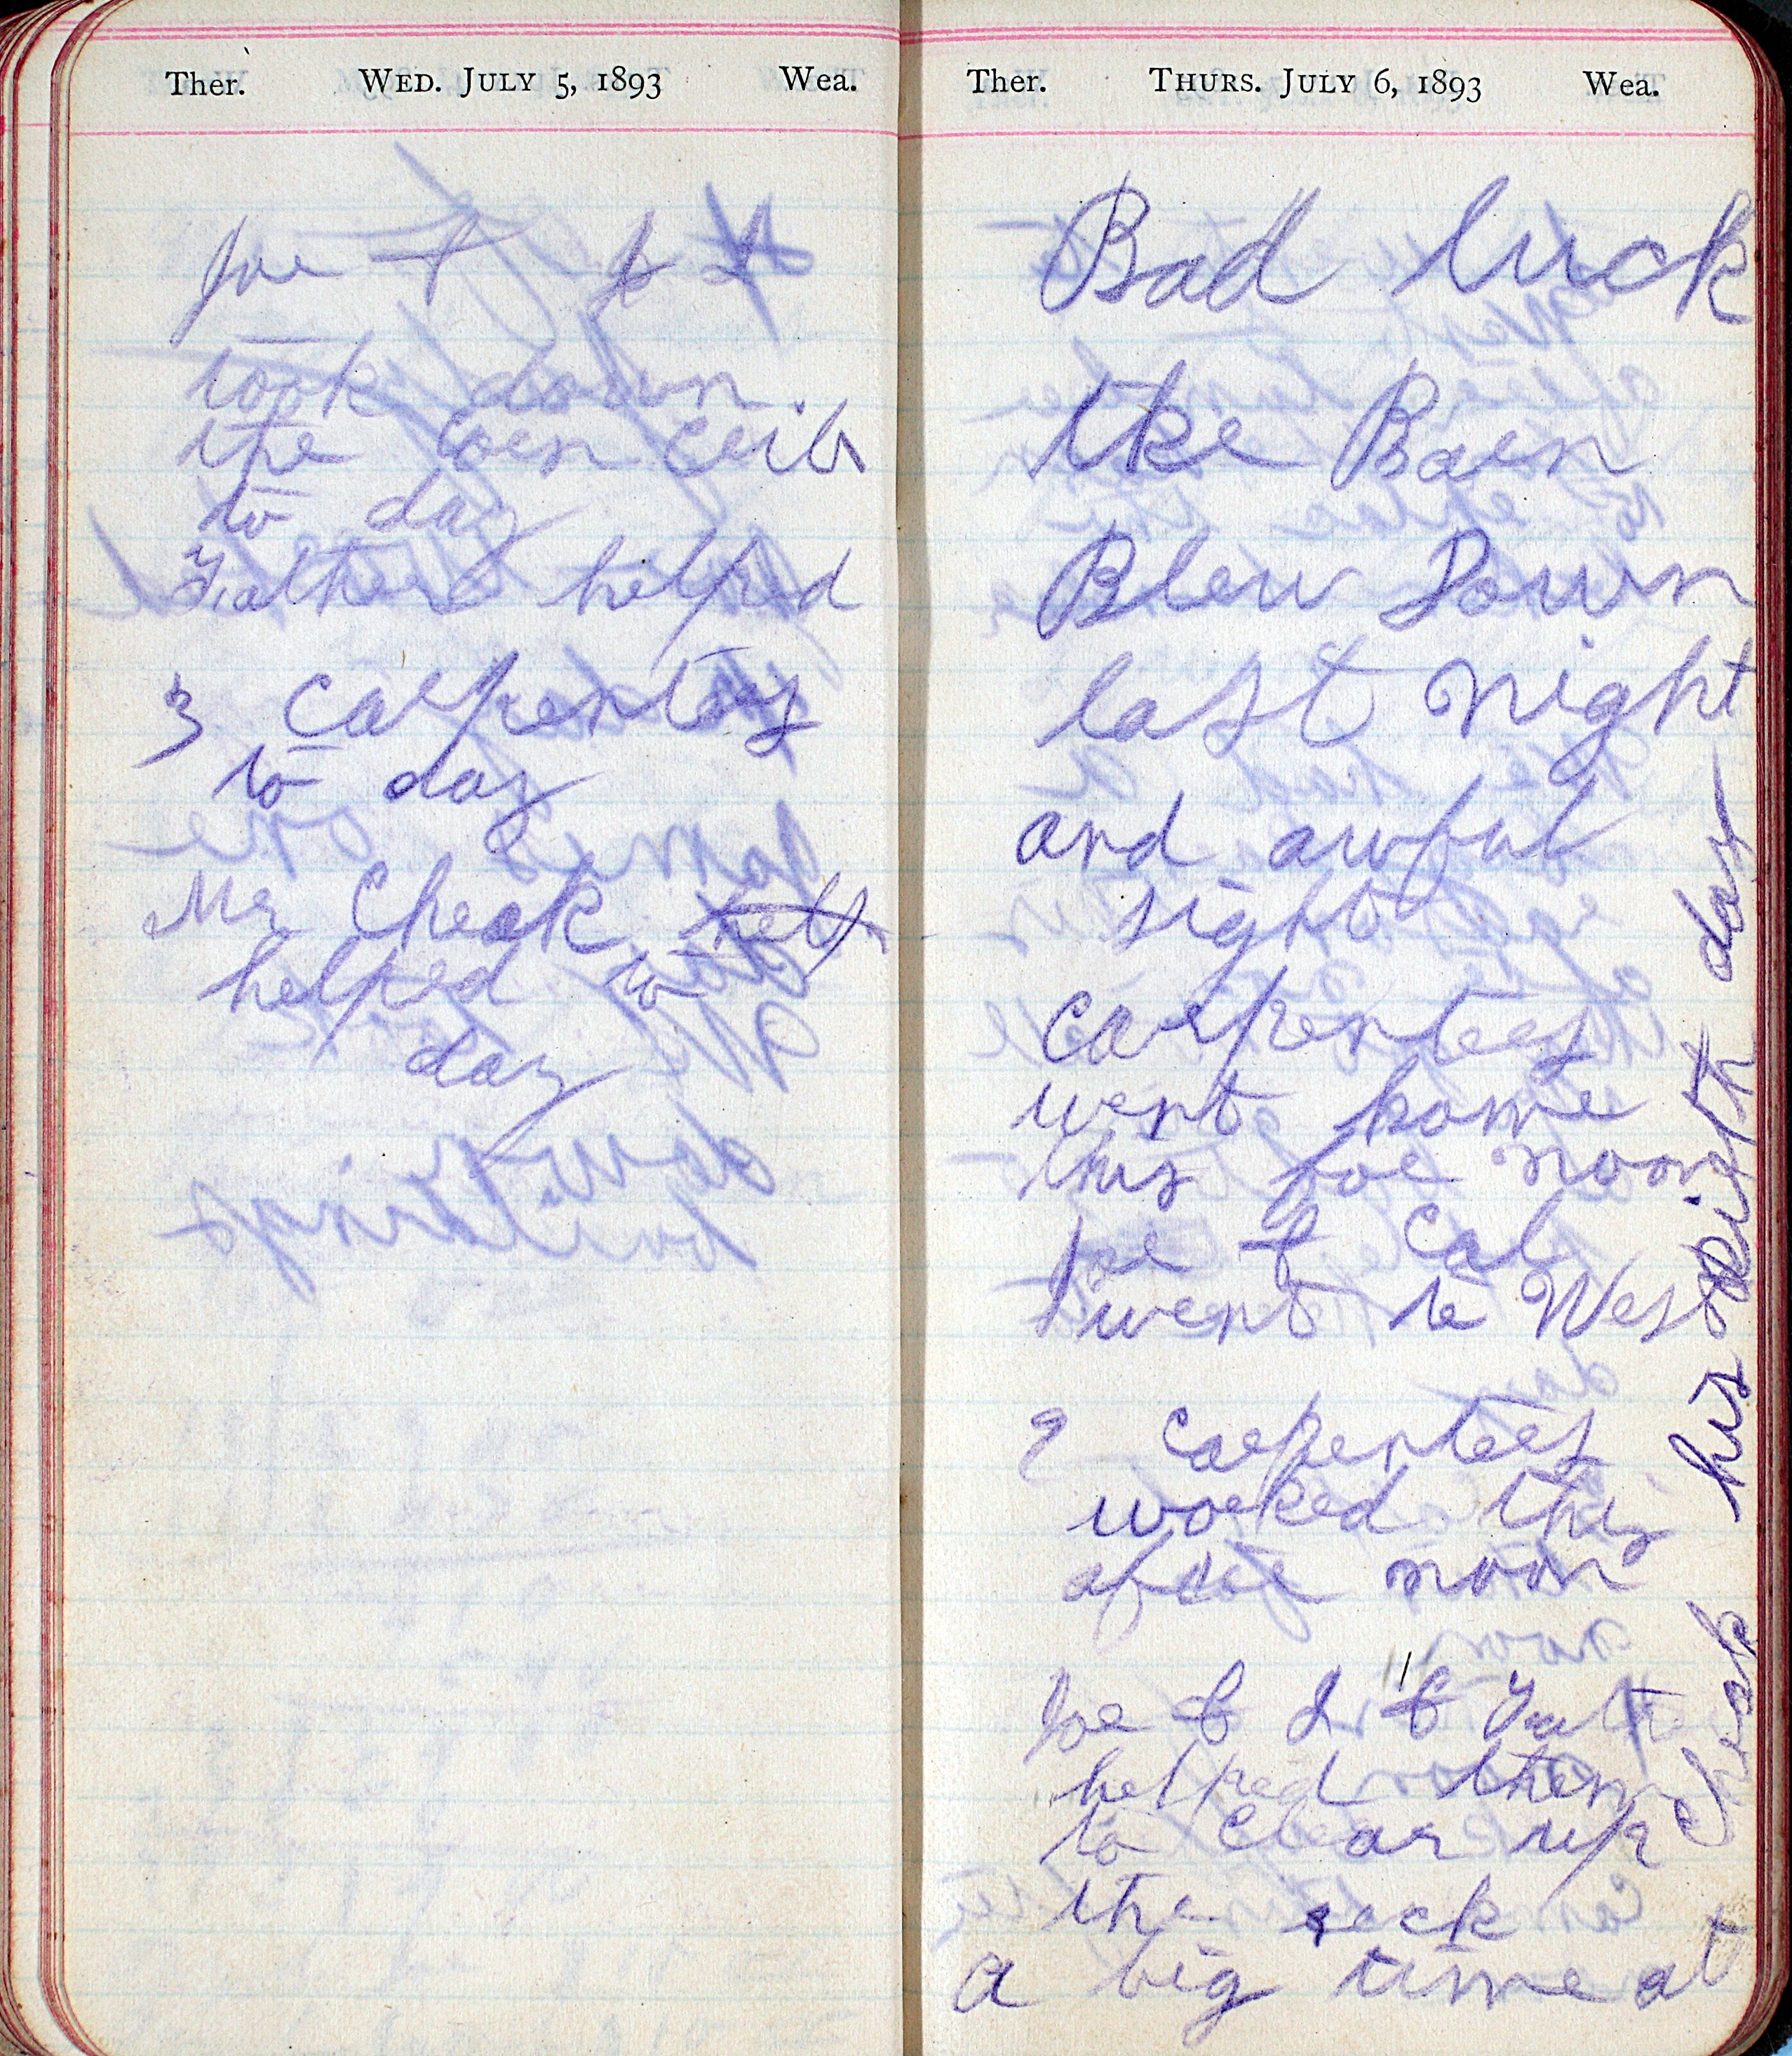 Ther. WED. JULY 5, 1893 Wea.
Joe & I
took down
the Corn Crib
to day
Father helped
3 Carpenters
to day
Mr Cheak help
helped to
day
Ther. THURS. JULY 6, 1893 Wea.
Bad luck
the Barn
Blew Down
last night
and awful
sight
carpenters
went home
this fore noon
Joe & Cal
went to West
2 carpenters
worked this
after noon
Joe & I & Fath
helped them
to clear up
the reck
a big time at
Cheak his birth day